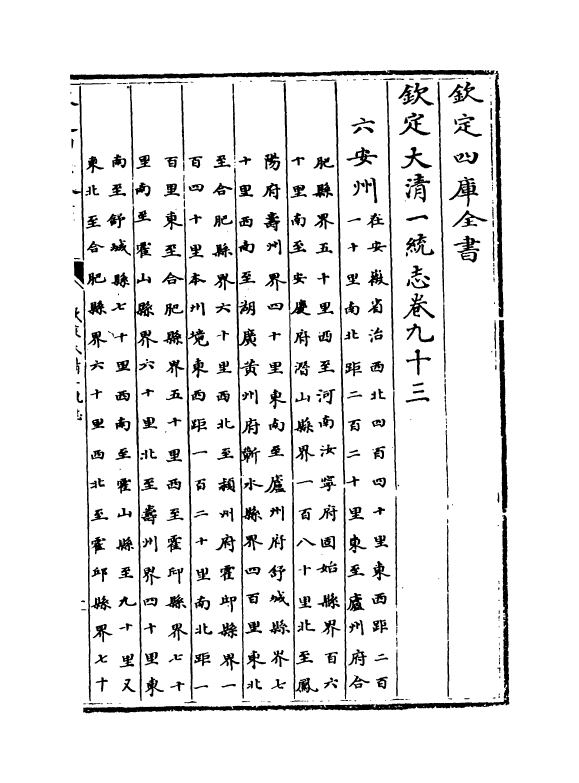 欽定四庫全書
欽定大清一統志卷九十三
六安州
在安徽省治西北四百四十里東西距二百
一十里南北距二百二十里東至廬州府合
肥縣界五十里西至河南汝寧府固始縣界百六
十里南至安慶府潛山縣界一百八十里北至鳳
陽府壽州界四十里東南至廬州府舒城縣界七
十里西南至湖廣黃州府蘄水縣界四百里東北
至合肥縣界六十里西北至潁州府霍邱縣界一
百四十里本州境東西距一百二十里南北距一
百里東至合肥縣界五十里西至霍邱縣界七十
里南至霍山縣界六十里北至壽州界四十里東
南至舒城縣七十里西南至霍山縣至九十里又
東北至合肥縣界六十里西北至霍邱縣界七十